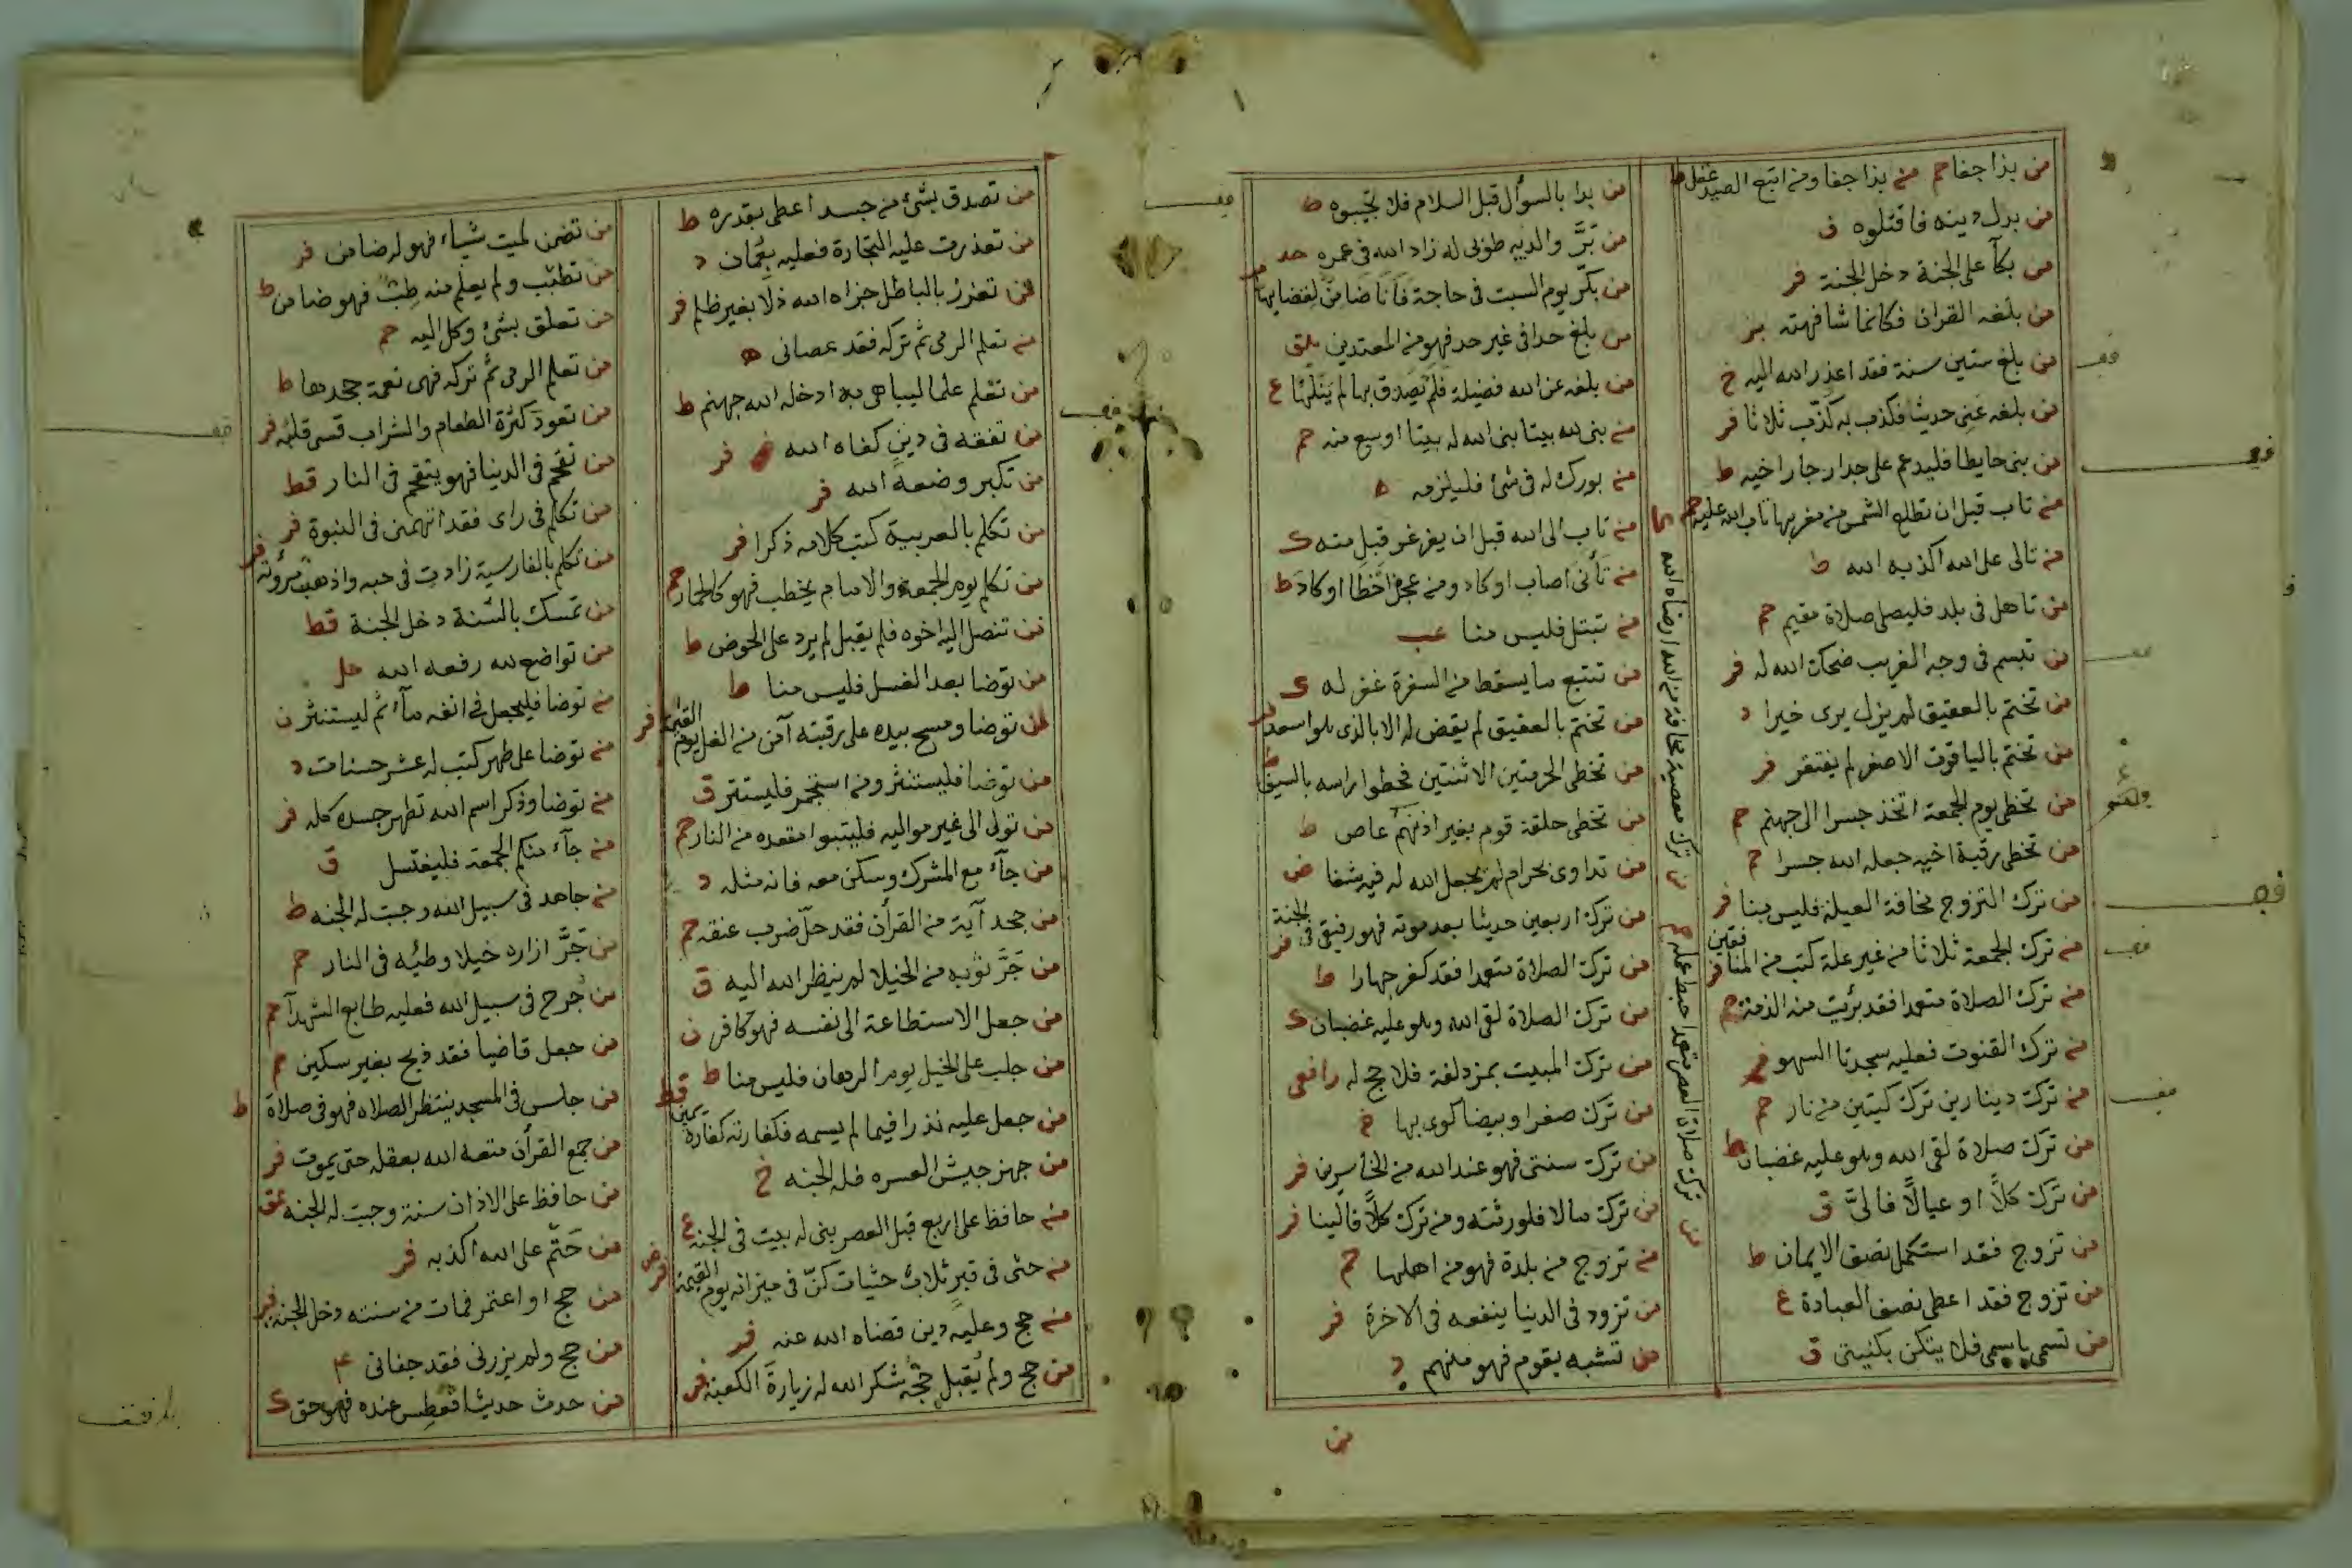 من بذا جفا حم من بذا جفا ومن اتبع الصيد غفل ط
من بدل دينه فاقتلوه ق
من بكآ على الجنة دخل الجنة فر
من بلغه القران فكانما شافهته بز
من بلغ ستين سنة فقد اعذر الله اليه خ
من بلغه عني حديث فكذب به كذب ثلاثا فر
من بنى حايطا فليدعم على جدار جار اخيه ط
من تاب قبل ان تطلع الشمس من مغربها تاب الله عليه حم
من تالى على الله اكذبه الله ط
من تاهل في بلد فليصلى صلاة مقيم حم
من تبسم في وجه الغريب ضحك الله له فر
من تختم بالعقيق لم يزل يرى خيرا د
من تختم بالياقوت الاصفر لم يفتقر فر
من تخطى يوم الجمعة اتخذ جسرا الى جهنم حم
من تخطى رقبة اخيه جعله الله جسرا حم
من ترك التزوج مخافة العيلة فليس منا فر
من ترك الجمعة ثلاثا من غير علة كتب من المنافقين فر
من ترك الصلاة متعمدا فقد برئت منه الذمة حم
من ترك القنوت فعليه سجدتا السهو فر
من ترك دينارين ترك كيتين من نار حم
من ترك صلاة لقى الله وهو عليه غضبان ط
من ترك كلاً او عيالاً فاليّ ق
من تزوج فقد استكمل نصف الايمان ط
من تزوج فقد اعطى نصف العبادة ع
من تسمى باسمى فلا يتكن بكنيتى ق
من ترك معصية مخافة من الله ارضاه الله
من ترك صلاة العصر متعمدا حبط عمله حم
من بدا بالسؤال قبل السلام فلا تجيبوه ط
من برَّ والديه طوبى له زاد الله في عمره خد
من بكّر يوم السبت في حاجة فانا ضامن لقضايها
من بلغ حدا في غير حد فهو من المعتدين
من بلغه عن الله فضيلة فلم يصدق بها لم ينلها ع
من بنى لله بيتا بنى الله له بيتا اوسع منه حم
من بورك له في شئ فليلزمه ه
من تاب الى الله قبل ان يغرغر قبل منه ك
من تأنى اصاب او كاد ومن عجل اخطا او كاد ط
من تبتل فليس منا عب
من تتبع ما يسقط من السفرة غفر له ك
من تختم بالعقيق لم يقض له الا بالذى هو اسعد
من تخطى الحرمتين الاثنتين فخطوا راسه بالسيف
من تخطى حلقة قوم بغير اذنهم عاص ط
من تداوى بحرام لم يجعل الله له فيه شفا ض
من ترك اربعين حديثا بعد موته فهو رفيقى في الجنة فر
من ترك الصلاة متعمدا فقد كفر جهارا ط
من ترك الصلاة لقى الله وهو عليه غضبان ك
من ترك المبيت بمزدلفة فلا حج له رافعى
من ترك صفرا او بيضا كوى بها خ
من ترك سنتى فهو عند الله من الخاسرين فر
من ترك مالا فلورثته ومن ترك كلاً فالينا فر
من تزوج من بلدة فهو من اهلها حم
من تزود في الدنيا ينفعه في الاخرة فر
من تشبه بقوم فهو منهم د
من
من تصدق بشئ من جسده اعطى بقدره ط
من تعذرت عليه التجارة فعليه بعمان د
من تعزز بالباطل جزاه الله ذلا بغير ظلم فر
من تعلم الرمى ثم تركه فقد عصانى ه
من تعلم علما ليباهى به ادخله الله جهنم ط
من تفقه في دين كفاه الله فر
من تكبر وضعه الله فر
من تكلم بالعربية كتب كلامه ذكرا فر
من تكلم يوم الجمعة والامام يخطب فهو كالحمار حم
من تنصل اليه اخوه فلم يقبل لم يرد على الحوض ط
من توضا بعد الغسل فليس منا ط
من توضا ومسح بيده على رقبته آمن من الغل يوم القيمة فر
من توضا فليستنثر ومن استجمر فليستتر ق
من تولى الى غير مواليه فليتبوا مقعده من النار حم
من جآء مع المشرك وسكن معه فانه مثله د
من جحد آية من القرآن فقد حلّ ضرب عنقه حم
من جَرَّ ثوبه من الخيلا لم ينظر الله اليه ق
من جعل الاستطاعة الى نفسه فهو كافر ن
من جلب على الخيل يوم الرهان فليس منا ط
من جعل عليه نذرا فيما لم يسمه فكفارته كفارة يمين قط
من جهز جيش العسره فله الجنه خ
من حافظ على اربع قبل العصر بنى له بيت في الجنه ع
من حثى في قبر ثلاث حثيات كنّ في ميزانه يوم القيمة فر
من حج وعليه دين قضاه الله عنه فر
من حج ولم يقبل حجه شكر الله له زيارة الكعبة فر
من تضمن لميت شياء فهو له ضامن فر
من تطبب ولم يعلم منه طب فهو ضامن ط
من تعلق بشئ وكل اليه حم
من تعلم الرمى ثم تركه فهى نعمة جحدها ط
من تعود كثرة الطعام والشراب قسى قلبه فر
من تقحم في الدنيا فهو يتقحم في النار قط
من تكلم في راى فقد اتهمنى في النبوة فر
من تكلم بالفارسية زادت في خبه واذهبت مروئته فر
من تمسك بالسنة دخل الجنة قط
من تواضع لله رفعه الله حل
من توضا فليجعل في انفه مآء ثم ليستنثر ن
من توضا على طهر كتب له عشر حسنات د
من توضا وذكر اسم الله تطهر جسده كله فر
من جآء منكم الجمعة فليغتسل ق
من جاهد في سبيل الله وجبت له الجنه ط
من جَرَّ ازاره خيلا وطئه في النار حم
من جرح في سبيل الله فعليه طابع الشهدآ حم
من جعل قاضيا فقد ذبح بغير سكين حم
من جلس في المسجد ينتظر الصلاه فهو في صلاة ط
من جمع القرآن متعه الله بعقله حتى يموت فر
من حافظ على الاذان سنة وجبت له الجنه عق
من حتّم على الله اكذبه فر
من حج او اعتمر فمات من سنته دخل الجنه فر
من حج ولم يزرنى فقد جفانى
من حدث حديثا فعطس عنده فهو حق ك